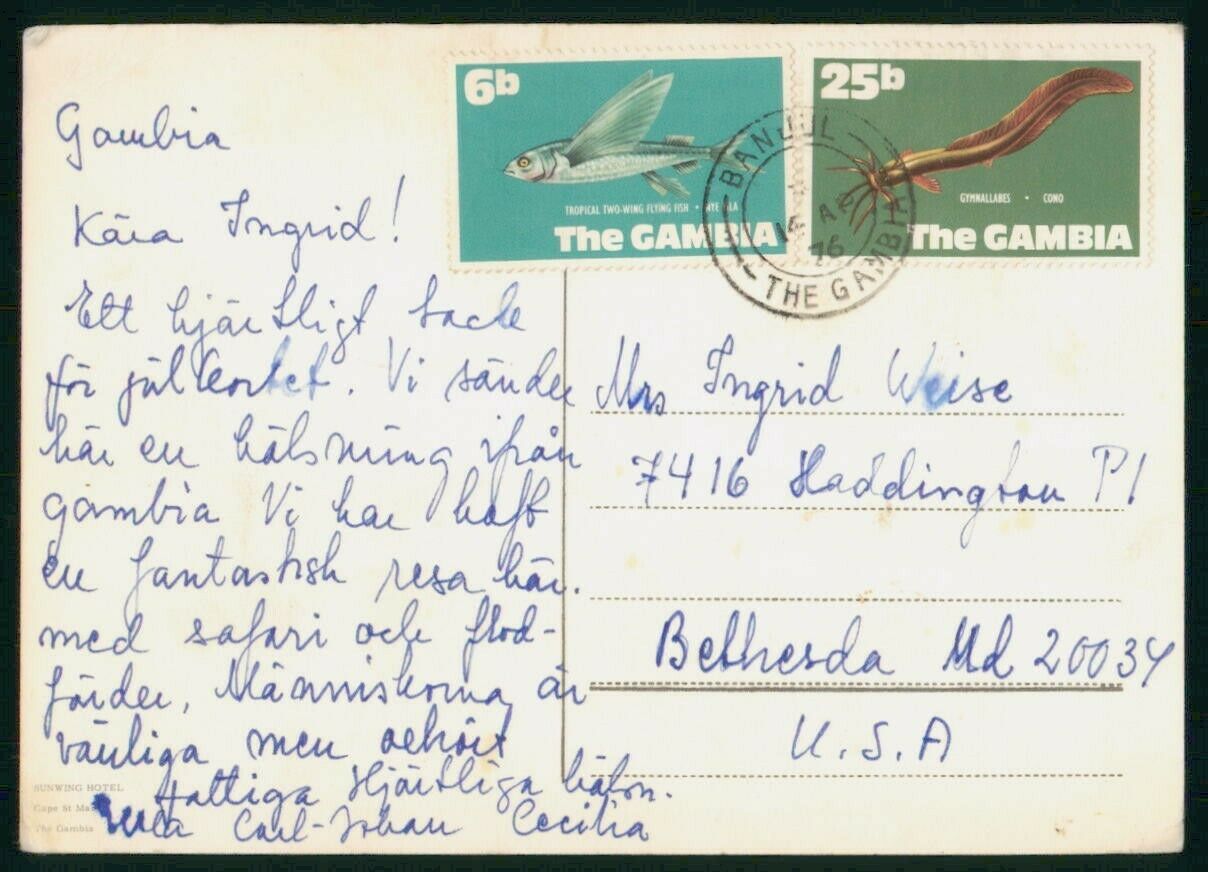 Gambia
Kära Ingrid!
Ett hjärtligt tack
för julkortet. Vi sänder
här en hälsning ifrån
gambia Vi har haft
en fantastisk resa här.
med safari och flod-
färder, Människorna är
vänliga men oerhört
fattiga Hjärtliga häls.
Carl-Johan Cecilia
SUNWING HOTEL
Cape St Ma
The Gambia
6b
TROPICAL TWO-WING FLYING FISH •
The GAMBIA
25b
GYMNALLABES • CONO
The GAMBIA
BANJUL
14
76
THE GAMBIA
Mrs Ingrid Weise
7416 Haddington Pl
Bethesda Md 20034
U.S.A